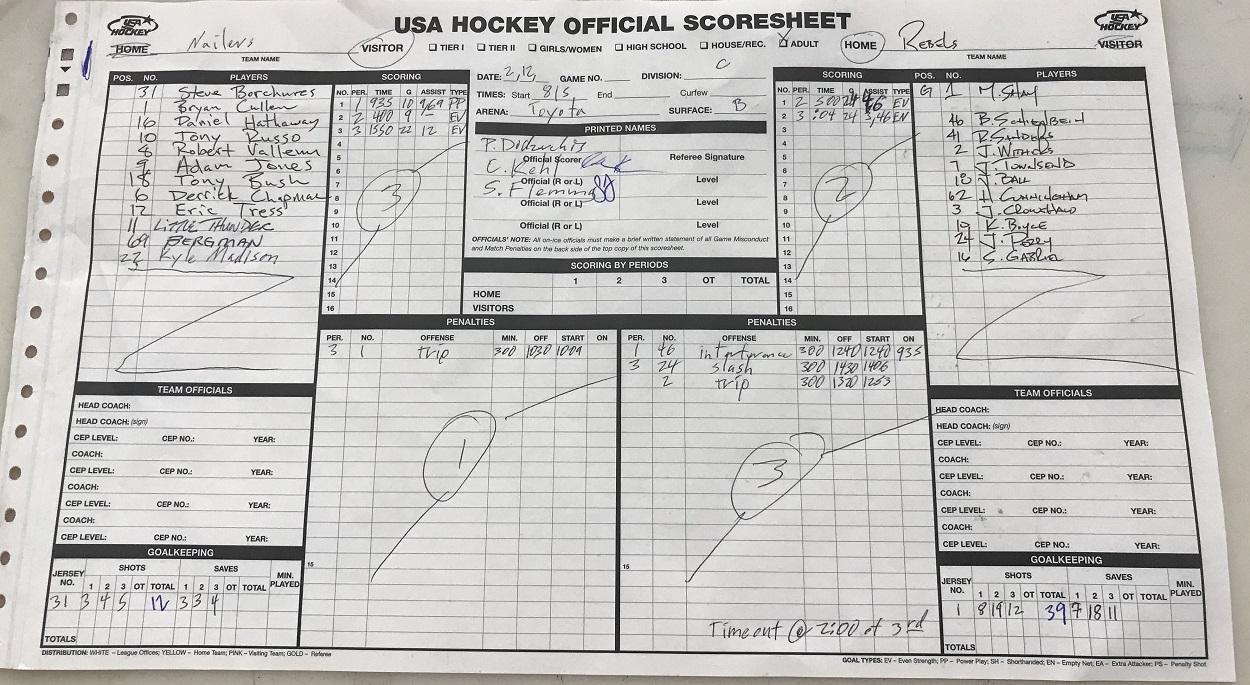 USA HOCKEY OFFICIAL SCORESHEET
USA HOCKEY
HOME Nailers VISITOR
TEAM NAME
☐ TIER I ☐ TIER II ☐ GIRLS/WOMEN ☐ HIGH SCHOOL ☐ HOUSE/REC. ☒ ADULT
HOME Rebels VISITOR
TEAM NAME
USA HOCKEY
POS. NO. PLAYERS
31 Steve Borchures
1 Bryan Cullen
16 Daniel Hathaway
10 Tony Russo
8 Robert Vallenn
9 Adam Jones
18 Tony Bush
6 Derrick Chapman
12 Eric Tress
11 LITTLE THUNDER
69 BERGMAN
22 Kyle Madison
SCORING
NO. PER. TIME G ASSIST TYPE
1 1 935 10 9/69 PP
2 2 400 9 - EV
3 3 1550 22 12 EV
4
5
6
7
8
9
10
11
12
13
14
15
16
3
DATE: 2/12/ GAME NO. DIVISION: C
TIMES: Start 815 End Curfew
ARENA: Toyota SURFACE: B
PRINTED NAMES
Official Scorer Referee Signature
C. Kehl
Official (R or L) Level
S. Flemming
Official (R or L) Level
Official (R or L) Level
OFFICIALS' NOTE: All on-ice officials must make a brief written statement of all Game Misconduct
and Match Penalties on the back side of the top copy of this scoresheet.
SCORING BY PERIODS
1 2 3 OT TOTAL
HOME
VISITORS
SCORING
NO. PER. TIME G ASSIST TYPE
1 2 500 24 46 EV
2 3 :04 24 3,46 EN
3
4
5
6
7
8
9
10
11
12
13
14
15
16
2
POS. NO. PLAYERS
G 1 M. Shay
46 B. SCHIERBEIN
41 R. SANDERS
2 J. WITHERS
7 J. TOWNSEND
18 J. BALL
62 CUNNINGHAM
3 J. CRAWSHAW
19 K. BOYCE
24 J. PERRY
16 S. GABRIEL
PENALTIES
PER. NO. OFFENSE MIN. OFF START ON
3 1 trip 300 1030 1009
1
15
PENALTIES
PER. NO. OFFENSE MIN. OFF START ON
1 46 interference 300 1240 1240 935
3 24 slash 300 1430 1406
2 trip 300 1320 1253
3
15
Timeout @ 2:00 of 3rd
TEAM OFFICIALS
HEAD COACH:
HEAD COACH: (sign)
CEP LEVEL: CEP NO.: YEAR:
COACH:
CEP LEVEL: CEP NO.: YEAR:
COACH:
CEP LEVEL: CEP NO.: YEAR:
COACH:
CEP LEVEL: CEP NO.: YEAR:
GOALKEEPING
JERSEY NO. SHOTS SAVES MIN. PLAYED
1 2 3 OT TOTAL 1 2 3 OT TOTAL
31 3 4 5 12 3 3 4
TOTALS
TEAM OFFICIALS
HEAD COACH:
HEAD COACH: (sign)
CEP LEVEL: CEP NO.: YEAR:
COACH:
CEP LEVEL: CEP NO.: YEAR:
COACH:
CEP LEVEL: CEP NO.: YEAR:
COACH:
CEP LEVEL: CEP NO.: YEAR:
GOALKEEPING
JERSEY NO. SHOTS SAVES MIN. PLAYED
1 2 3 OT TOTAL 1 2 3 OT TOTAL
1 8 19 12 39 7 18 11
TOTALS
DISTRIBUTION: WHITE – League Offices; YELLOW – Home Team; PINK – Visiting Team; GOLD – Referee
GOAL TYPES: EV – Even Strength; PP – Power Play; SH – Shorthanded; EN – Empty Net; EA – Extra Attacker; PS – Penalty Shot